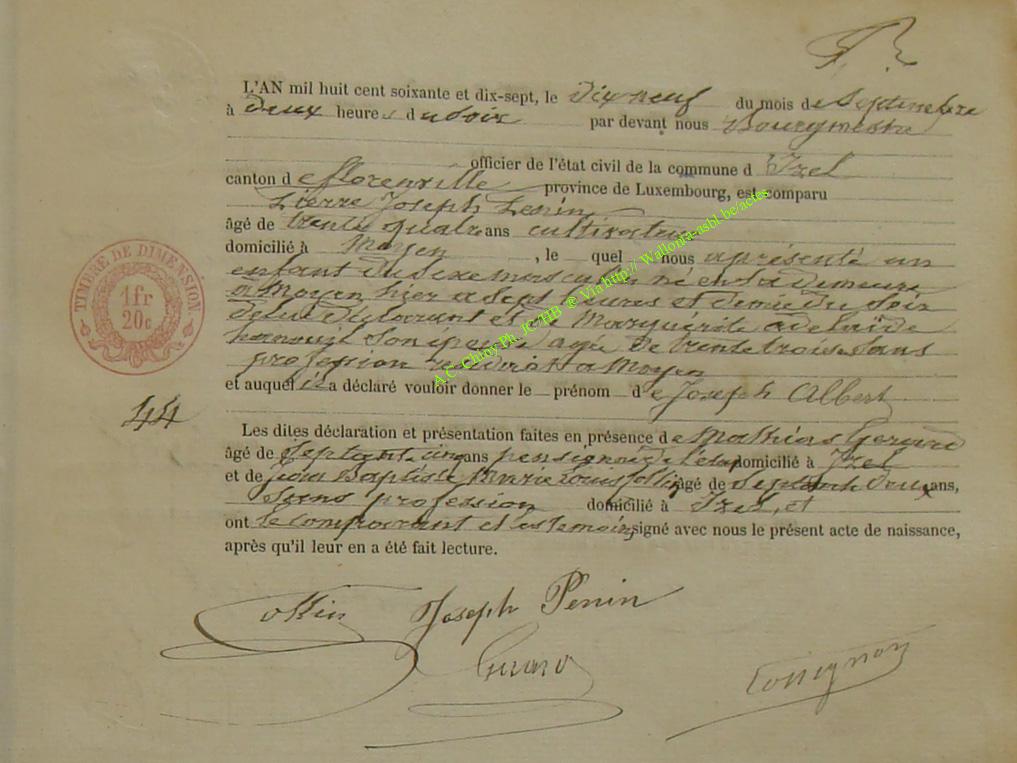 L'AN mil huit cent soixante et dix-sept, le Dix neuf du mois de Septembre
à deux heures du soir par devant nous Bourgmestre
officier de l'état civil de la commune d'Izel
canton de florenville province de Luxembourg, est comparu
Pierre Joseph Penin
âgé de trente quatre ans cultivateur
domicilié à Moyen, le quel nous a présenté un
enfant du sexe masculin né en sa demeure
a Moyen hier a sept heures et demie du soir
de lui Déclarant et de Marguérite adelaïde
son épouse agée de trente trois ans
profession résidant a Moyen
et auquel il a déclaré vouloir donner le prénom de Joseph Albert
44
Les dites déclaration et présentation faites en présence de Mathias Gerard
âgé de Septante cinq ans pensionné de l'état domicilié à Izel
et de Jean Baptiste Marie Louis Collin âgé de Septante deux ans,
Sans profession domicilié à Izel, et
ont le comparant et les temoins signé avec nous le présent acte de naissance,
après qu'il leur en a été fait lecture.
Collin Joseph Penin
Gerard
TIMBRE DE DIMENSION
1 fr
20c
A.C. Chiny Ph. JC HB @ Via http:// Wallonia-asbl.be/actes